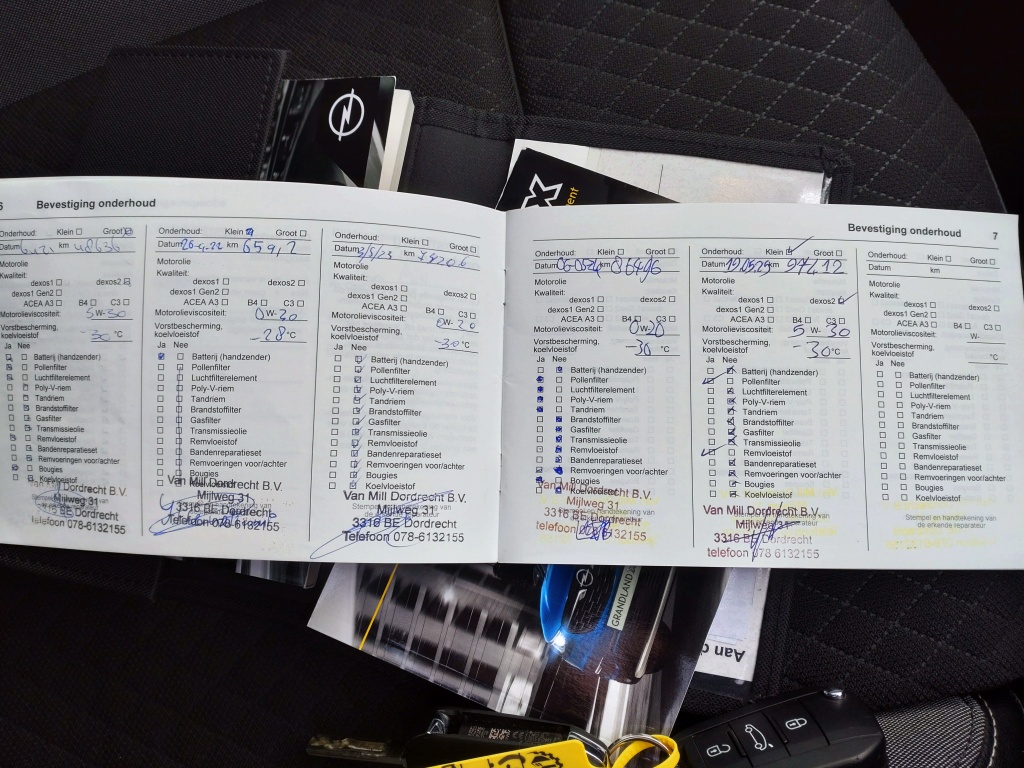 6 Bevestiging onderhoud
Onderhoud: Klein Groot
Datum km 48636
Motorolie
Kwaliteit:
dexos1 dexos2
dexos1 Gen2
ACEA A3 B4 C3
Motorolieviscositeit: 5 W-30
Vorstbescherming,
koelvloeistof -30 °C
Ja Nee
Batterij (handzender)
Pollenfilter
Luchtfilterelement
Poly-V-riem
Tandriem
Brandstoffilter
Gasfilter
Transmissieolie
Remvloeistof
Bandenreparatieset
Remvoeringen voor/achter
Bougies
Koelvloeistof
Van Mill Dordrecht B.V.
Mijlweg 31
3316 BE Dordrecht
Telefoon 078-6132155
Onderhoud: Klein Groot
Datum 26-4-22 km 65912
Motorolie
Kwaliteit:
dexos1 dexos2
dexos1 Gen2
ACEA A3 B4 C3
Motorolieviscositeit: 0 W-20
Vorstbescherming,
koelvloeistof -28 °C
Ja Nee
Batterij (handzender)
Pollenfilter
Luchtfilterelement
Poly-V-riem
Tandriem
Brandstoffilter
Gasfilter
Transmissieolie
Remvloeistof
Bandenreparatieset
Remvoeringen voor/achter
Bougies
Koelvloeistof
Van Mill Dordrecht B.V.
Mijlweg 31
3316 BE Dordrecht
Telefoon 078-6132155
Onderhoud: Klein Groot
Datum 3/5/23 km 75206
Motorolie
Kwaliteit:
dexos1 dexos2
dexos1 Gen2
ACEA A3 B4 C3
Motorolieviscositeit: 0 W-20
Vorstbescherming,
koelvloeistof -30 °C
Ja Nee
Batterij (handzender)
Pollenfilter
Luchtfilterelement
Poly-V-riem
Tandriem
Brandstoffilter
Gasfilter
Transmissieolie
Remvloeistof
Bandenreparatieset
Remvoeringen voor/achter
Bougies
Koelvloeistof
Van Mill Dordrecht B.V.
Mijlweg 31
3316 BE Dordrecht
Telefoon 078-6132155
Bevestiging onderhoud 7
Onderhoud: Klein Groot
Datum km 86496
Motorolie
Kwaliteit:
dexos1 dexos2
dexos1 Gen2
ACEA A3 B4 C3
Motorolieviscositeit: 0 W-20
Vorstbescherming,
koelvloeistof -30 °C
Ja Nee
Batterij (handzender)
Pollenfilter
Luchtfilterelement
Poly-V-riem
Tandriem
Brandstoffilter
Gasfilter
Transmissieolie
Remvloeistof
Bandenreparatieset
Remvoeringen voor/achter
Bougies
Koelvloeistof
Van Mill Dordrecht B.V.
Mijlweg 31
3316 BE Dordrecht
telefoon 078-6132155
Onderhoud: Klein Groot
Datum 19.0525 km 97212
Motorolie
Kwaliteit:
dexos1 dexos2
dexos1 Gen2
ACEA A3 B4 C3
Motorolieviscositeit: 5 W-30
Vorstbescherming,
koelvloeistof -30 °C
Ja Nee
Batterij (handzender)
Pollenfilter
Luchtfilterelement
Poly-V-riem
Tandriem
Brandstoffilter
Gasfilter
Transmissieolie
Remvloeistof
Bandenreparatieset
Remvoeringen voor/achter
Bougies
Koelvloeistof
Van Mill Dordrecht B.V.
Mijlweg 31
3316 BE Dordrecht
telefoon 078-6132155
Onderhoud: Klein Groot
Datum km
Motorolie
Kwaliteit:
dexos1 dexos2
dexos1 Gen2
ACEA A3 B4 C3
Motorolieviscositeit: W-
Vorstbescherming,
koelvloeistof °C
Ja Nee
Batterij (handzender)
Pollenfilter
Luchtfilterelement
Poly-V-riem
Tandriem
Brandstoffilter
Gasfilter
Transmissieolie
Remvloeistof
Bandenreparatieset
Remvoeringen voor/achter
Bougies
Koelvloeistof
Stempel en handtekening van
de erkende reparateur
GRANDLAND
Aan d